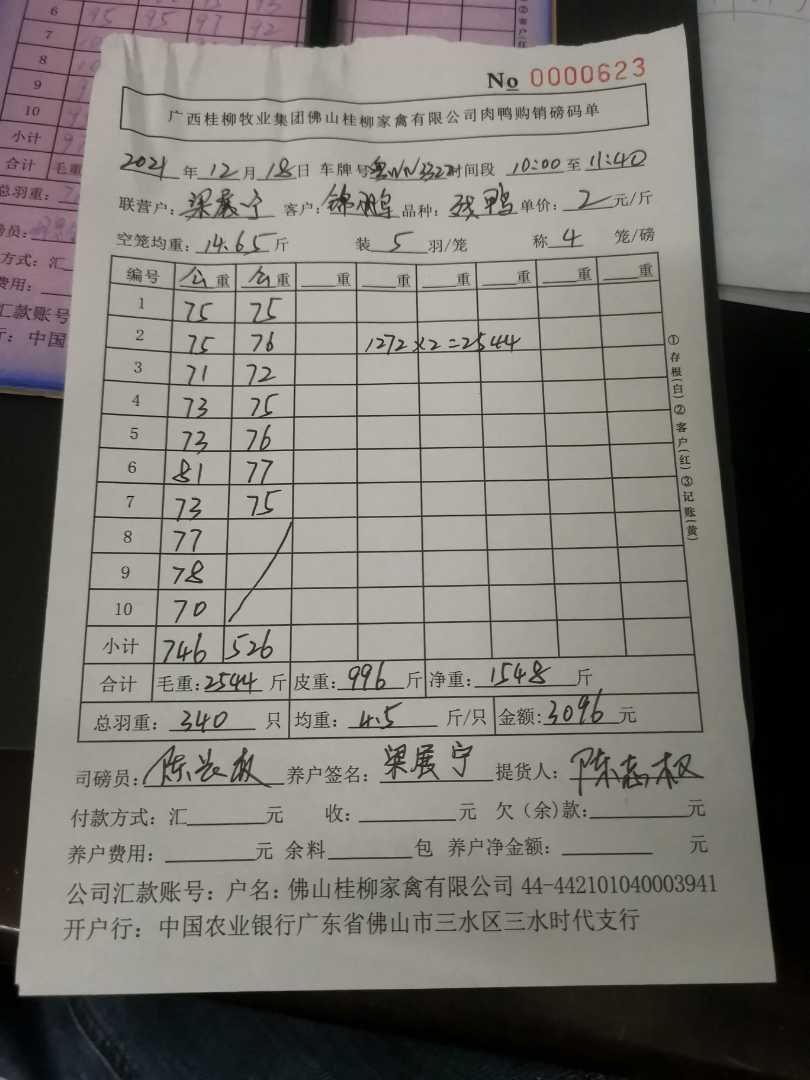 6 95 95 97 92
7
8
9
10
小计
合计 毛重:
总羽重:
方式: 汇
费用:
汇款账号
行: 中国
No 0000623
广西桂柳牧业集团佛山桂柳家禽有限公司肉鸭购销磅码单
2021 年 12 月 18 日 车牌号 时间段 10:00 至 11:40
联营户: 梁展宁 客户: 锦鹏 品种: 残鸭 单价: 2 元/斤
空笼均重: 14.65 斤 装 5 羽/笼 称 4 笼/磅
编号 公重 公重 重 重 重 重 重 重
1 75 75
2 75 76 1272×2=2544
3 71 72
4 73 75
5 73 76
6 81 77
7 73 75
8 77
9 78
10 70
小计 746 526
合计 毛重: 2544 斤 皮重: 996 斤 净重: 1548 斤
总羽重: 340 只 均重: 4.5 斤/只 金额: 3096 元
司磅员: 养户签名: 梁展宁 提货人: 陈志权
付款方式: 汇 元 收: 元 欠(余)款: 元
养户费用: 元 余料 包 养户净金额: 元
公司汇款账号: 户名: 佛山桂柳家禽有限公司 44-442101040003941
开户行: 中国农业银行广东省佛山市三水区三水时代支行
①存根(白)②客户(红)③记账(黄)